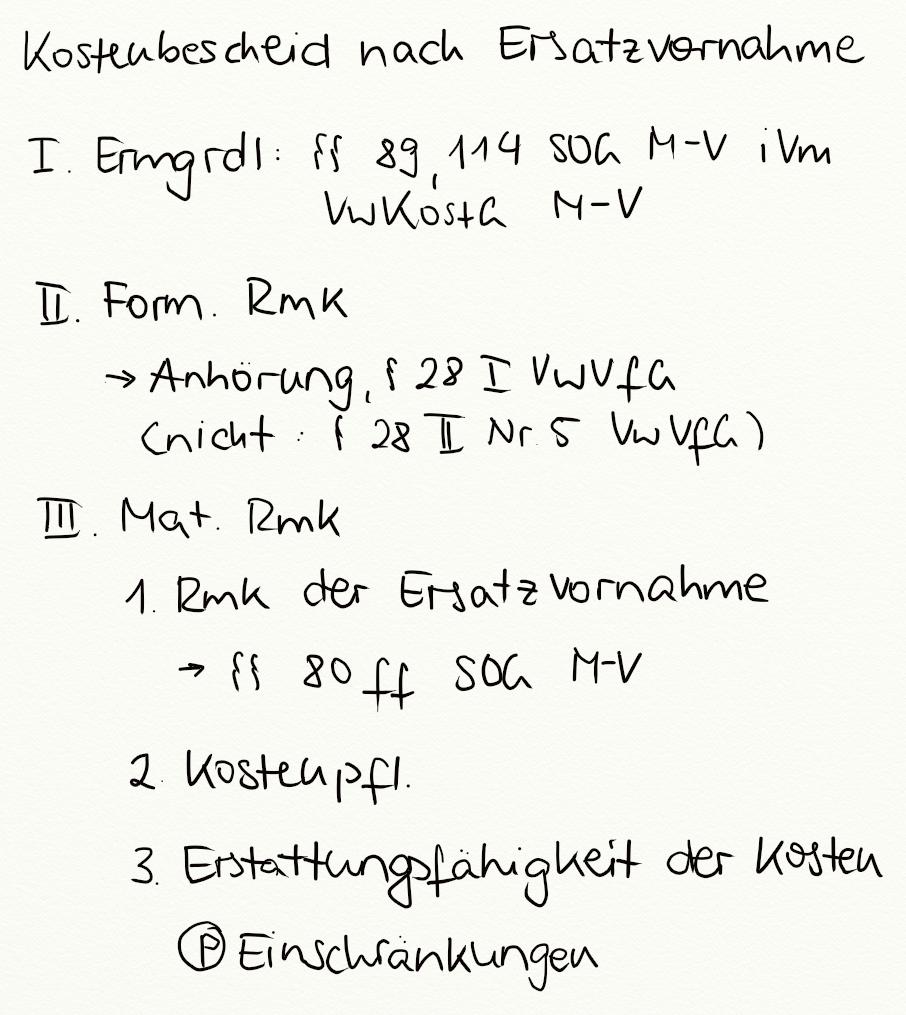 Kostenbescheid nach Ersatzvornahme
I. Ermgrdl: §§ 89, 114 SOG M-V iVm
VwKostG M-V
II. Form. Rmk
→ Anhörung, § 28 I VwVfG
(nicht: § 28 II Nr. 5 VwVfG)
III. Mat. Rmk
1. Rmk der Ersatzvornahme
→ §§ 80 ff SOG M-V
2. Kostenpfl.
3. Erstattungsfähigkeit der Kosten
Ⓟ Einschränkungen